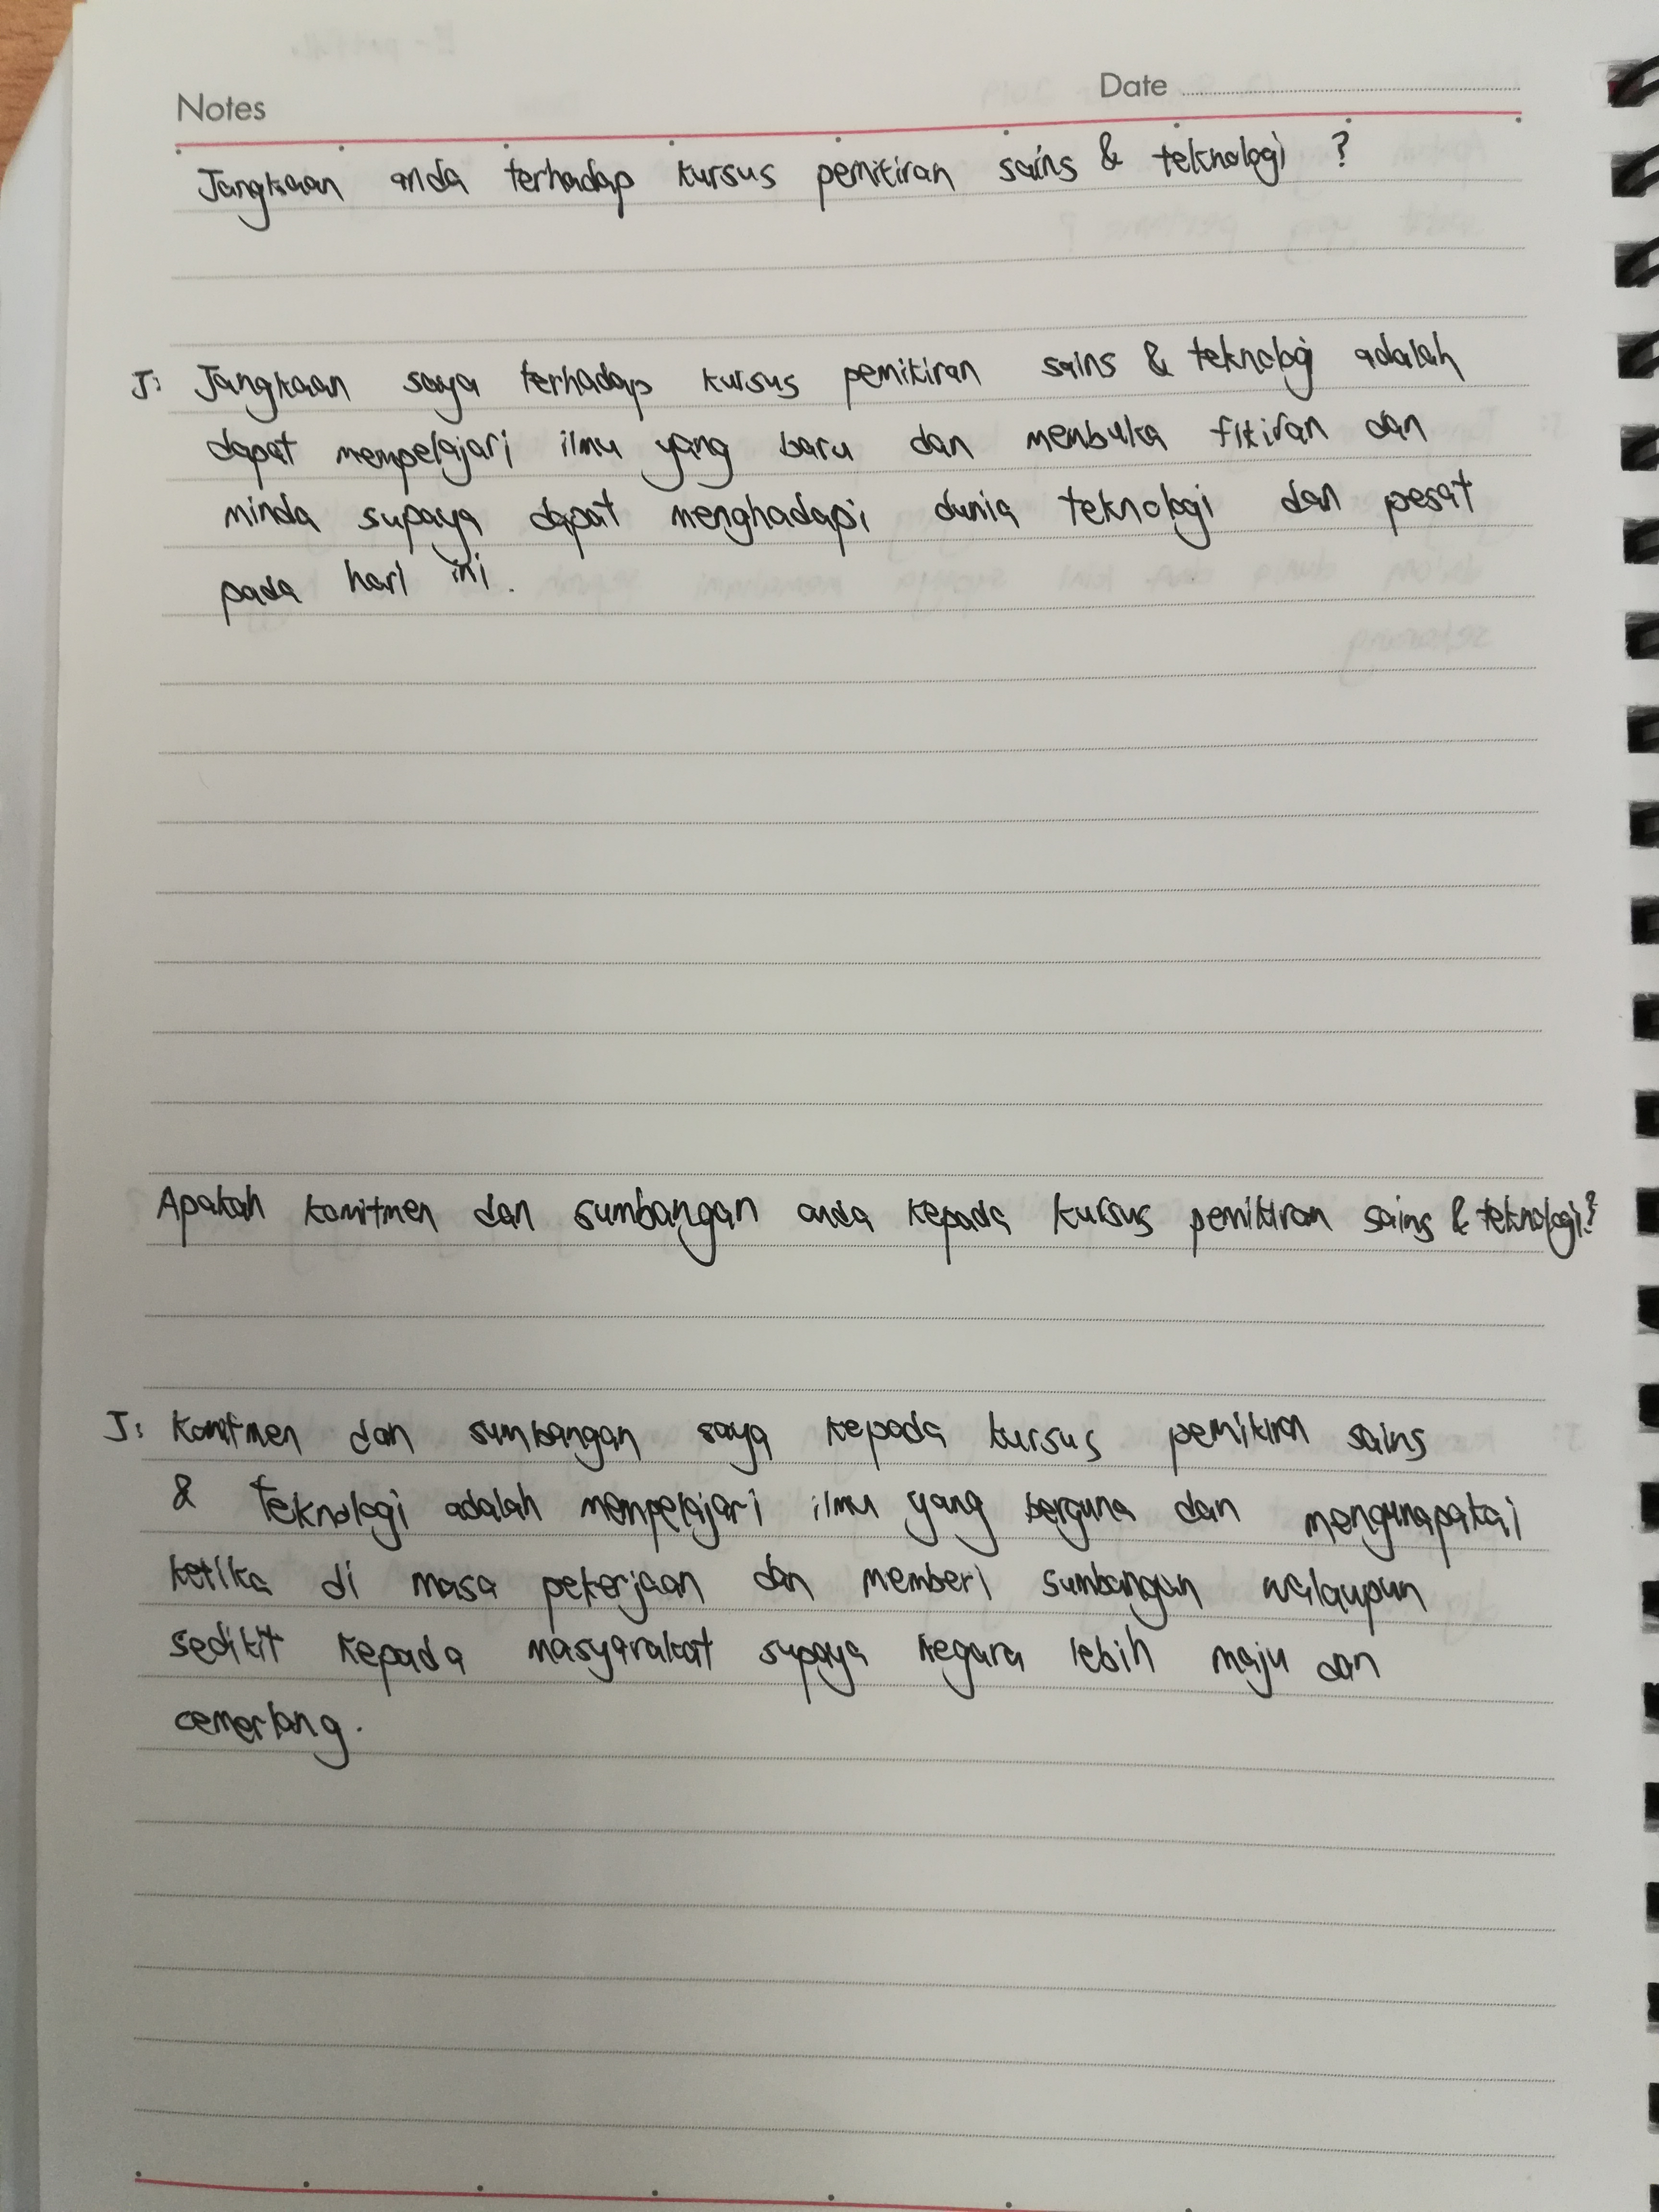 Notes
Date
Jangkaan anda terhadap kursus pemikiran sains & teknologi ?
J: Jangkaan saya terhadap kursus pemikiran sains & teknologi adalah
dapat mempelajari ilmu yang baru dan membuka fikiran dan
minda supaya dapat menghadapi dunia teknologi dan pesat
pada hari ini.
Apakah komitmen dan sumbangan anda kepada kursus pemikiran sains & teknologi?
J: Komitmen dan sumbangan saya kepada kursus pemikiran sains
& teknologi adalah mempelajari ilmu yang berguna dan mengunapakai
ketika di masa pekerjaan dan memberi sumbangan walaupun
sedikit kepada masyarakat supaya negara lebih maju dan
cemerlang.